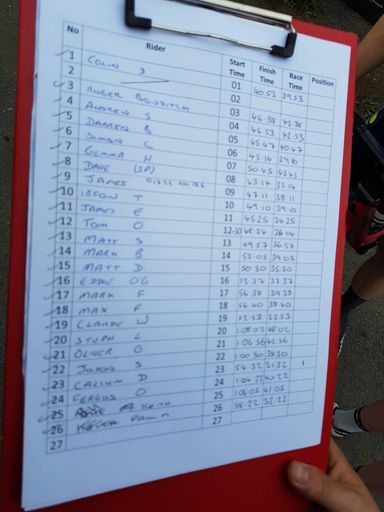 No Rider Start Time Finish Time Race Time Position
1 COLIN S 01 40 53 39 53
2 02
3 ROGER 03 46 38
4 ANDREW S 04 46 53 42 53
5 DARREN B 05 45 47 40 47
6 SIMON C 06 45 16
7 GEMMA H 07 50 45
8 DAVE (SP) 08 43 14 35 14
9 JAMES 09 47 11 38 11
10 T 10 49 10 39 10
11 JAMES E 11 45 25 34 25
12 TOM O 12:30
13 MATT S 13 49 57 36 57
14 MARK B 14 53 05 39 05
15 MATT D 15 50 30 35 30
16 EDDIE OG 16 53 37 37 37
17 MARK F 17 56 38 39 38
18 MAX F 18 56 40 38 40
19 CLAUDE W 19 52 53 33 53
20 STEPH L 20 1 08 02 48 02
21 OLIVER O 21 1 06 56 45 56
22 JASON S 22 1 00 30 38 30
23 CALLUM D 23 54 32 31 32
24 FERGUS O 24 1 04 22 40 22
25 KEITH 25 1 06 05 41 05
26 PAUL 26 58 22 32 22
27 27